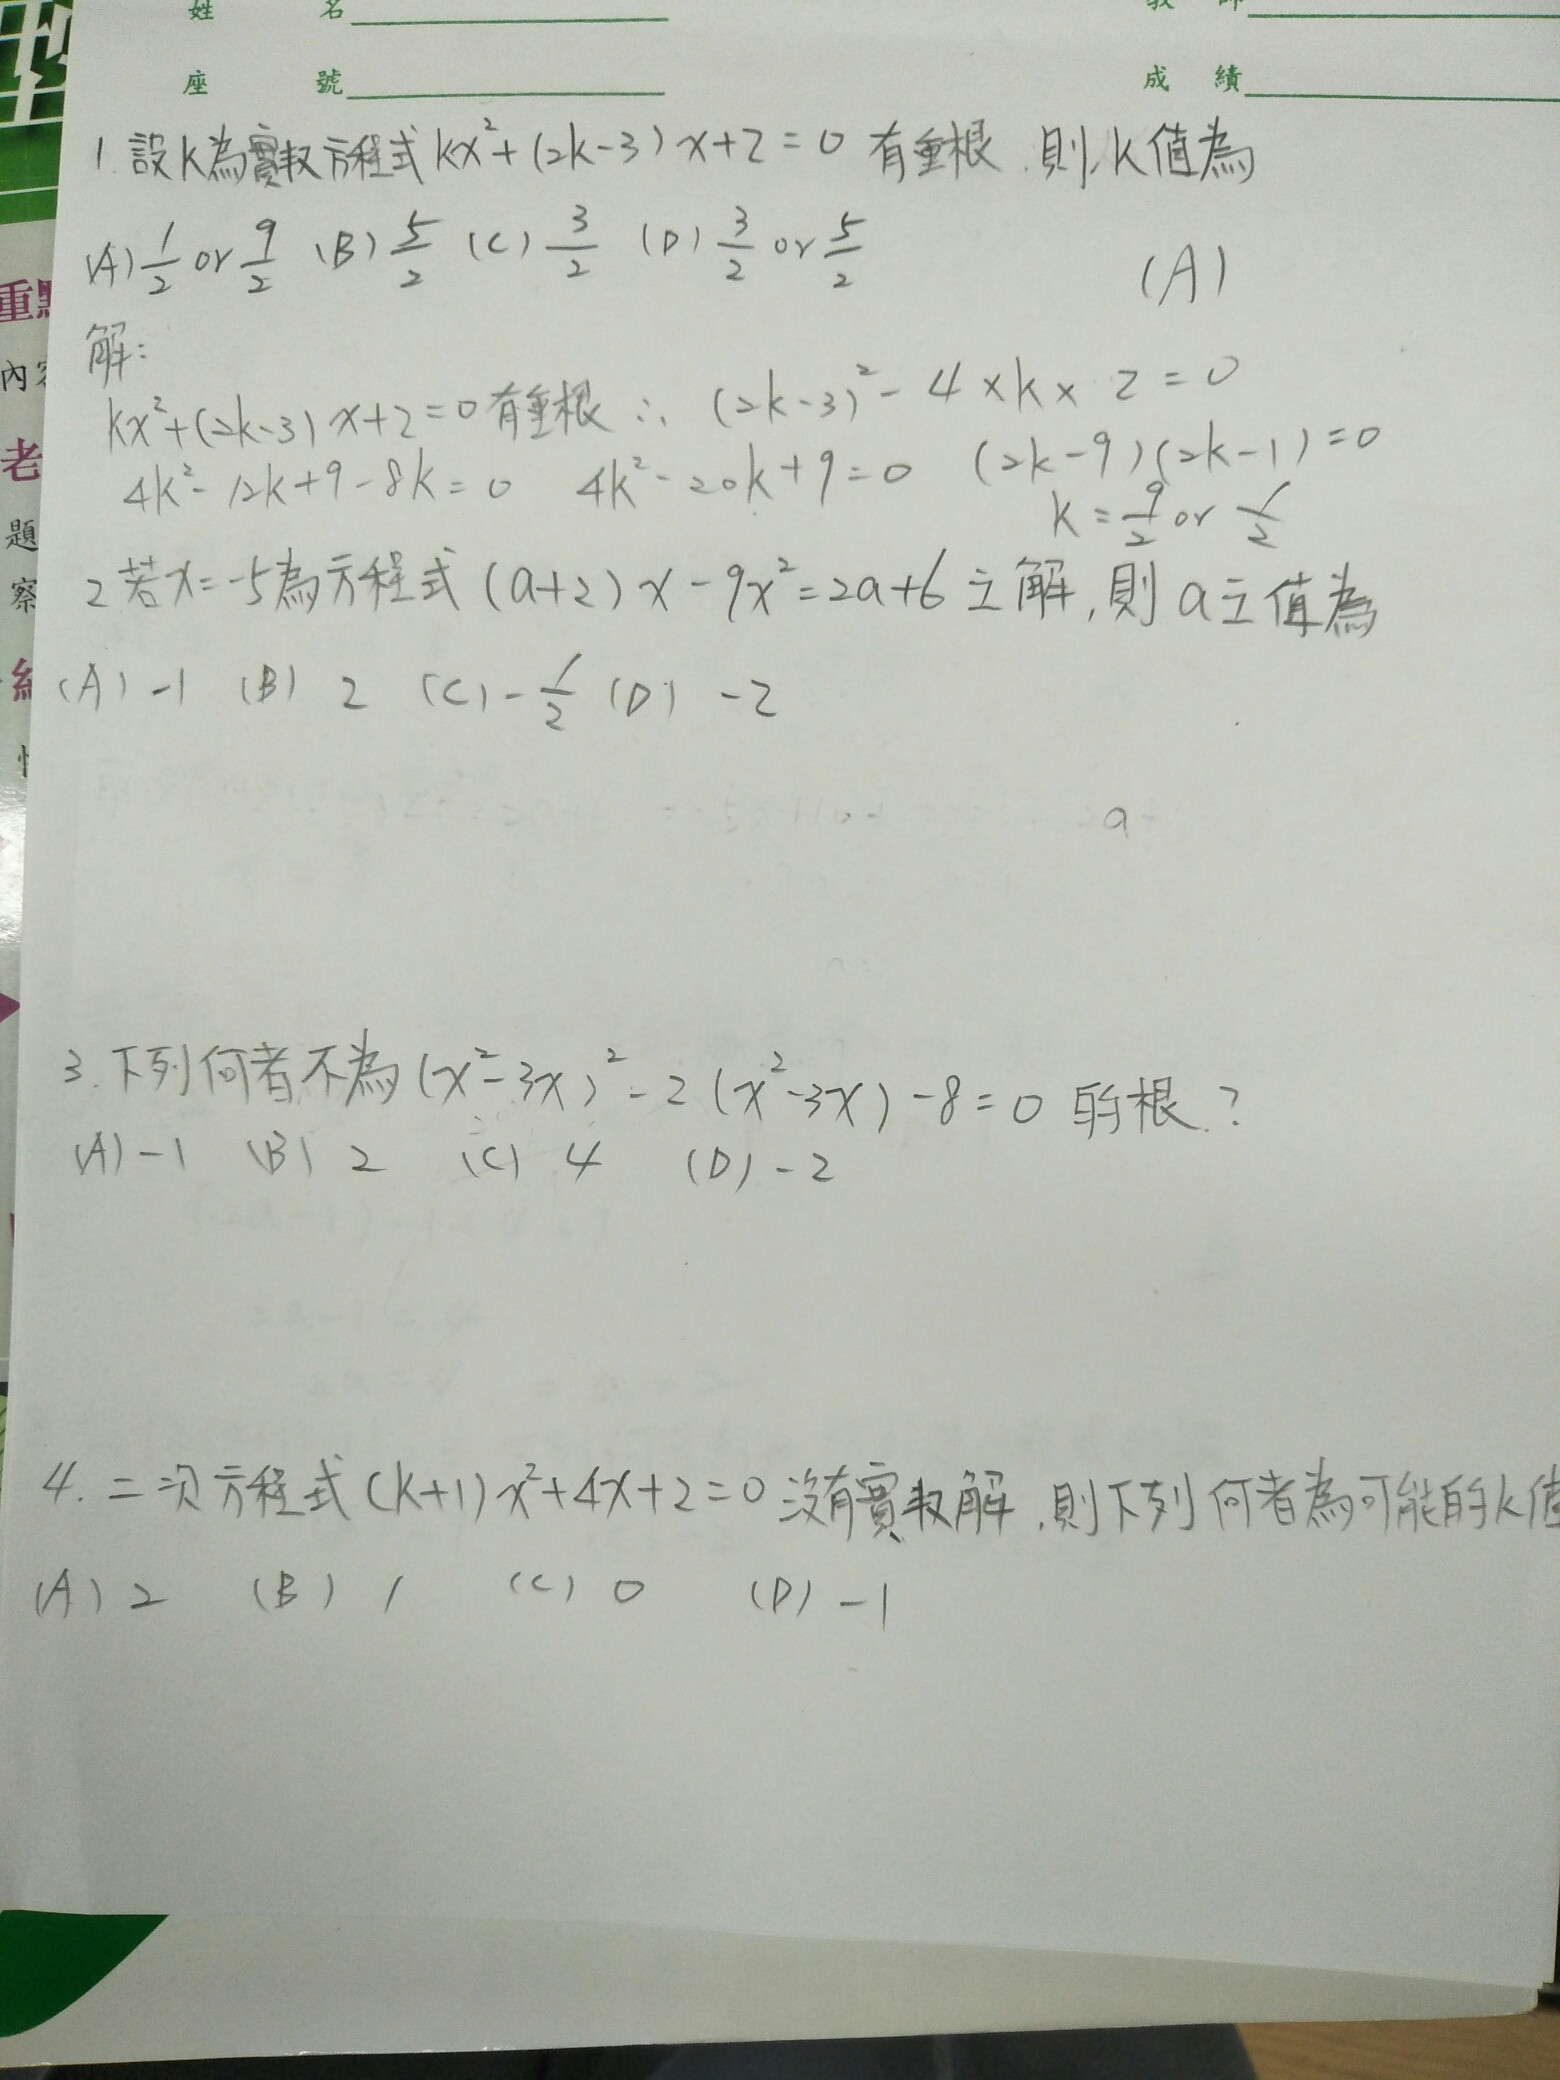 姓 名
教 師
座 號
成 績
1. 設k為實数方程式kx²+(2k-3)x+2=0有重根.則k值為
(A) 1/2 or 9/2 (B) 5/2 (C) 3/2 (D) 3/2 or 5/2
(A)
解:
kx²+(2k-3)x+2=0有重根 ∴ (2k-3)²-4×k×2=0
4k²-12k+9-8k=0 4k²-20k+9=0 (2k-9)(2k-1)=0
k=9/2 or 1/2
2 若x=-5為方程式(a+2)x-9x²=2a+6之解,則a之值為
(A) -1 (B) 2 (C) -1/2 (D) -2
a
3. 下列何者不為(x²-3x)²-2(x²-3x)-8=0的根?
(A) -1 (B) 2 (C) 4 (D) -2
4. 二次方程式(k+1)x²+4x+2=0沒有實数解.則下列何者為可能的k值
(A) 2 (B) 1 (C) 0 (D) -1
重
內
老
題
察